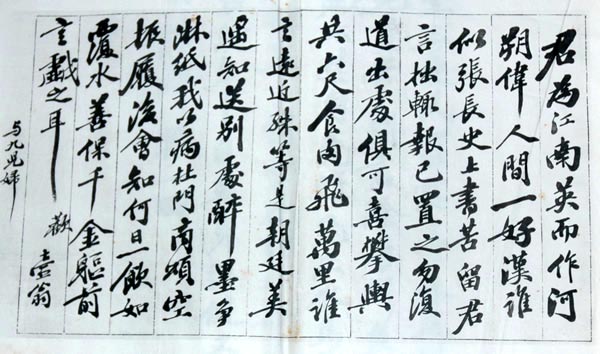 君為江南英而作河
朔偉人間一好漢誰
似張長史上書苦留君
言拙輒報已置之勿復
道出處俱可喜攀輿
共六尺食肉飛萬里誰
言遠近殊等是朝廷美
遙知送別處醉墨爭
淋紙我以病杜門商頌空
振履後會知何日一飲如
覆水善保千金軀前
言戲之耳 歡 壺翁
与九兒婦